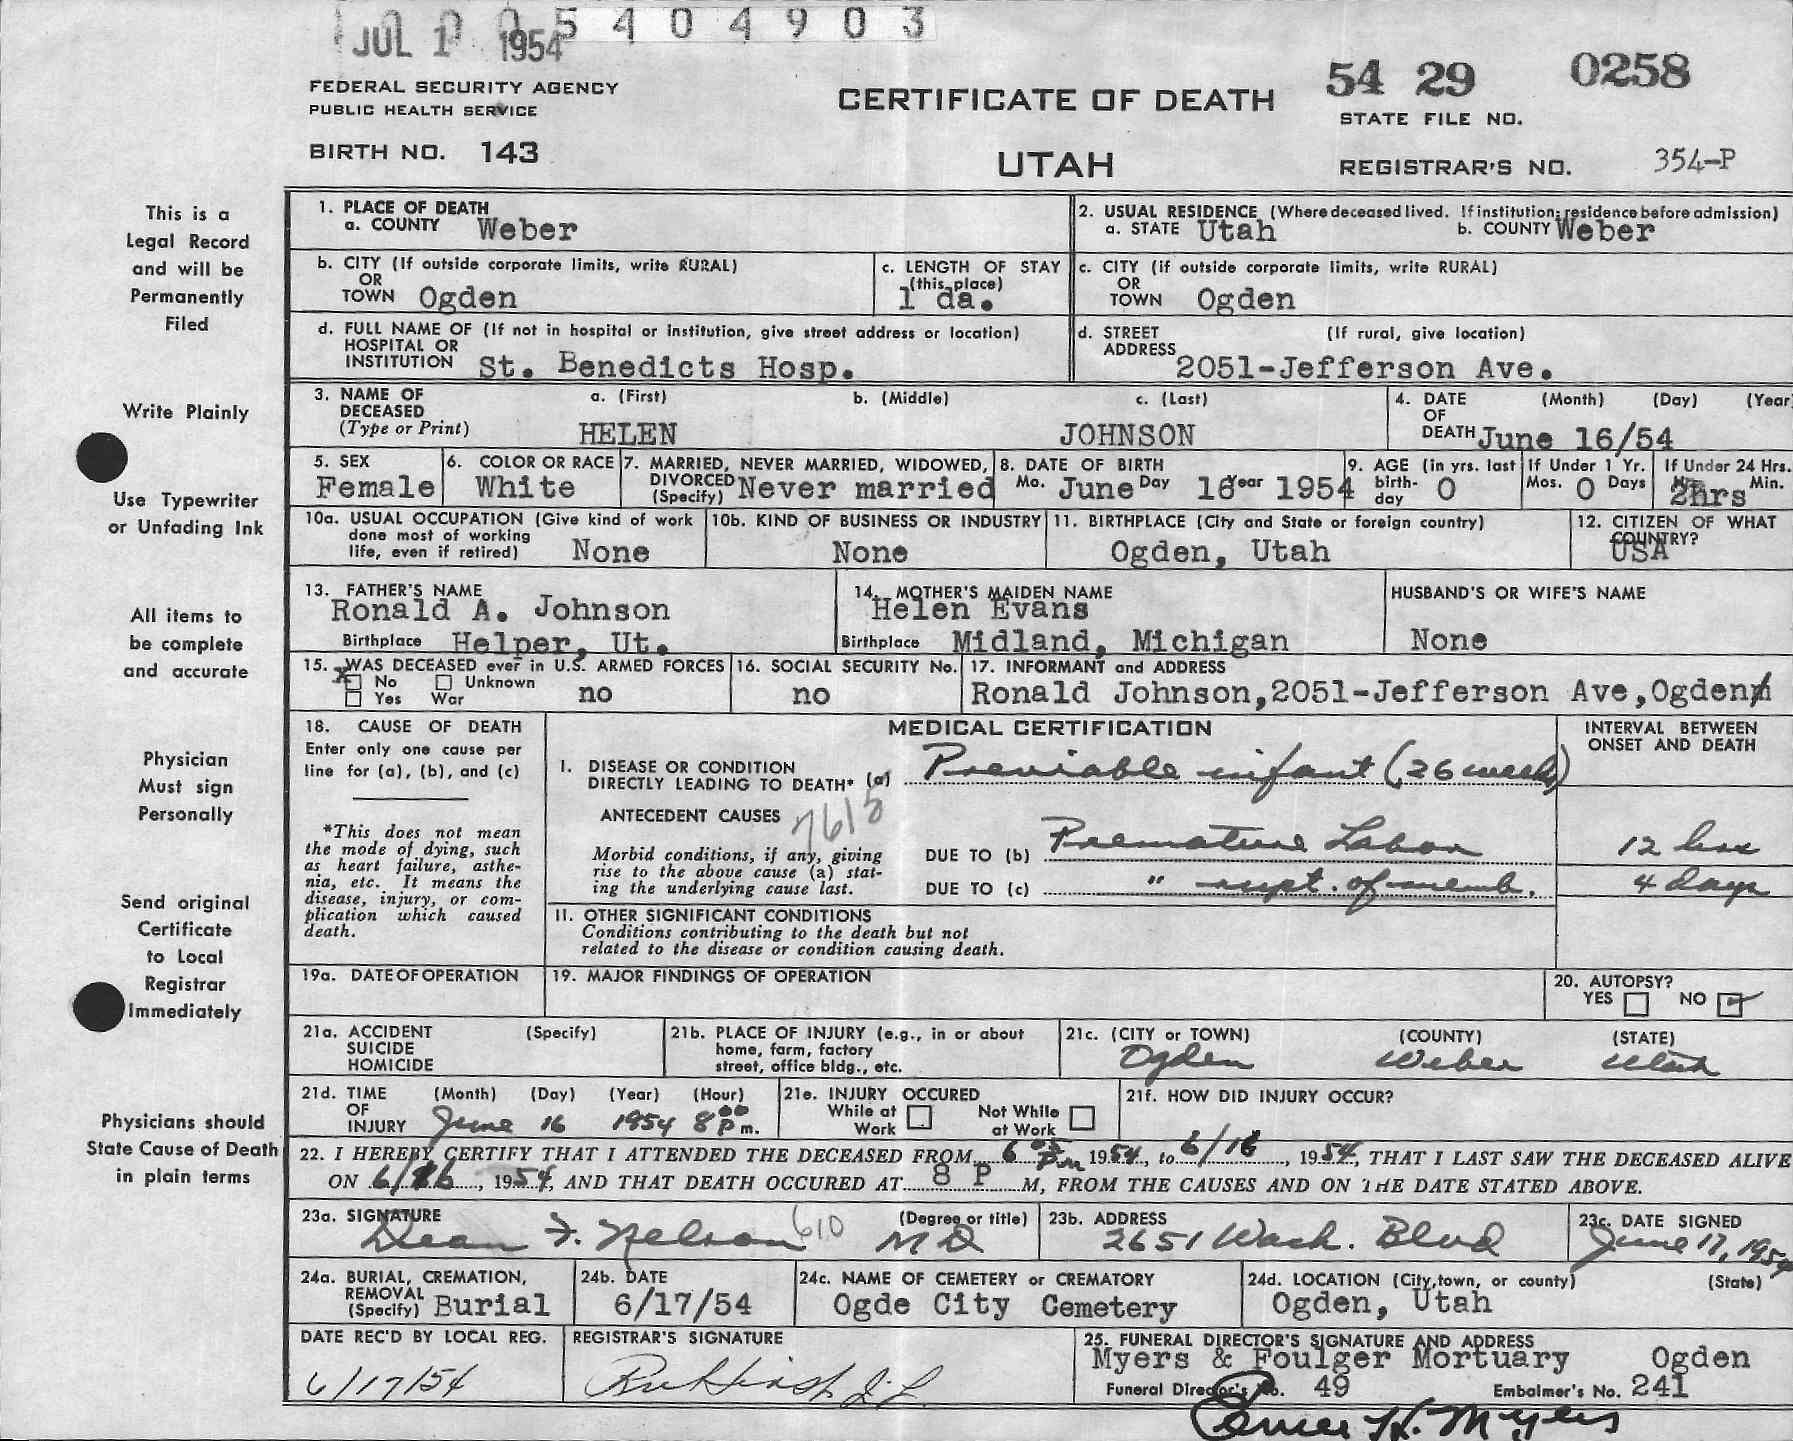 JUL 1 1954 5404903
FEDERAL SECURITY AGENCY
PUBLIC HEALTH SERVICE
CERTIFICATE OF DEATH
54 29 0258
STATE FILE NO.
BIRTH NO. 143
UTAH
REGISTRAR'S NO. 354-P
This is a
Legal Record
and will be
Permanently
Filed
Write Plainly
Use Typewriter
or Unfading Ink
All items to
be complete
and accurate
Physician
Must sign
Personally
Send original
Certificate
to Local
Registrar
Immediately
Physicians should
State Cause of Death
in plain terms
1. PLACE OF DEATH
a. COUNTY Weber
2. USUAL RESIDENCE (Where deceased lived. If institution: residence before admission)
a. STATE Utah b. COUNTY Weber
b. CITY (If outside corporate limits, write RURAL)
OR
TOWN Ogden
c. LENGTH OF STAY
(this place)
1 da.
c. CITY (if outside corporate limits, write RURAL)
OR
TOWN Ogden
d. FULL NAME OF (If not in hospital or institution, give street address or location)
HOSPITAL OR
INSTITUTION St. Benedicts Hosp.
d. STREET (If rural, give location)
ADDRESS
2051-Jefferson Ave.
3. NAME OF a. (First) b. (Middle) c. (Last)
DECEASED
(Type or Print) HELEN JOHNSON
4. DATE (Month) (Day) (Year
OF
DEATH June 16/54
5. SEX
Female
6. COLOR OR RACE
White
7. MARRIED, NEVER MARRIED, WIDOWED,
DIVORCED
(Specify) Never married
8. DATE OF BIRTH
Mo. June Day 16 Year 1954
9. AGE (in yrs. last
birth-
day 0
If Under 1 Yr.
Mos. 0 Days
If Under 24 Hrs.
2hrs Min.
10a. USUAL OCCUPATION (Give kind of work
done most of working
life, even if retired) None
10b. KIND OF BUSINESS OR INDUSTRY
None
11. BIRTHPLACE (City and State or foreign country)
Ogden, Utah
12. CITIZEN OF WHAT
COUNTRY?
USA
13. FATHER'S NAME
Ronald A. Johnson
Birthplace Helper, Ut.
14. MOTHER'S MAIDEN NAME
Helen Evans
Birthplace Midland, Michigan
HUSBAND'S OR WIFE'S NAME
None
15. WAS DECEASED ever in U.S. ARMED FORCES
x No Unknown
Yes War no
16. SOCIAL SECURITY No.
no
17. INFORMANT and ADDRESS
Ronald Johnson,2051-Jefferson Ave,Ogden
18. CAUSE OF DEATH
Enter only one cause per
line for (a), (b), and (c)
*This does not mean
the mode of dying, such
as heart failure, asthe-
nia, etc. It means the
disease, injury, or com-
plication which caused
death.
MEDICAL CERTIFICATION
INTERVAL BETWEEN
ONSET AND DEATH
I. DISEASE OR CONDITION
DIRECTLY LEADING TO DEATH* (a) Previable infant (26 weeks)
ANTECEDENT CAUSES
Morbid conditions, if any, giving
rise to the above cause (a) stat-
ing the underlying cause last.
DUE TO (b) Premature Labor 12 hrs
DUE TO (c) " rupt. of memb. 4 days
II. OTHER SIGNIFICANT CONDITIONS
Conditions contributing to the death but not
related to the disease or condition causing death.
19a. DATE OF OPERATION
19. MAJOR FINDINGS OF OPERATION
20. AUTOPSY?
YES NO ✓
21a. ACCIDENT (Specify)
SUICIDE
HOMICIDE
21b. PLACE OF INJURY (e.g., in or about
home, farm, factory
street, office bldg., etc.
21c. (CITY or TOWN) (COUNTY) (STATE)
Ogden Weber Utah
21d. TIME (Month) (Day) (Year) (Hour)
OF
INJURY June 16 1954 8 00 P m.
21e. INJURY OCCURED
While at Not While
Work at Work
21f. HOW DID INJURY OCCUR?
22. I HEREBY CERTIFY THAT I ATTENDED THE DECEASED FROM 6 Pm 1954, to 6/16, 1954, THAT I LAST SAW THE DECEASED ALIVE
ON 6/16, 1954, AND THAT DEATH OCCURED AT 8 P M, FROM THE CAUSES AND ON THE DATE STATED ABOVE.
23a. SIGNATURE (Degree or title)
Dean F. Nelson 610 MD
23b. ADDRESS
2651 Wash. Blvd
23c. DATE SIGNED
June 17, 1954
24a. BURIAL, CREMATION,
REMOVAL
(Specify) Burial
24b. DATE
6/17/54
24c. NAME OF CEMETERY or CREMATORY
Ogde City Cemetery
24d. LOCATION (City, town, or county) (State)
Ogden, Utah
DATE REC'D BY LOCAL REG.
6/17/54
REGISTRAR'S SIGNATURE
25. FUNERAL DIRECTOR'S SIGNATURE AND ADDRESS
Myers & Foulger Mortuary Ogden
Funeral Director's No. 49 Embalmer's No. 241
H. Myers